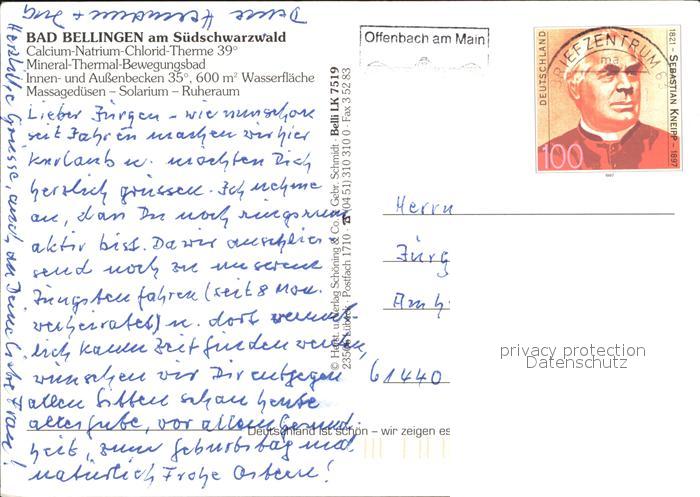 BAD BELLINGEN am Südschwarzwald
Calcium-Natrium-Chlorid-Therme 39°
Mineral-Thermal-Bewegungsbad
Innen- und Außenbecken 35°, 600 m² Wasserfläche
Massagedüsen – Solarium – Ruheraum
Lieber Jürgen – wie nun schon
seit Jahren machen wir hier
Kurlaub u. möchten Dich
herzlich grüssen. Ich nehme
an, dass Du noch rings rum
aktiv bist. Da wir anschlies-
send noch zu unserem
Jüngsten fahren (seit 8 Mon.
verheiratet) u. dort vermut-
lich kaum Zeit finden werden,
wünschen wir Dir entgegen
allen Sitten schon heute
alles Gute, vor allem Gesund-
heit, zum Geburtstag und
natürlich Frohe Ostern!
Herzliche Grüsse, auch an Deine liebe Frau!
Deine Hermann +
© Herst. u. Verlag Schöning & Co. + Gebr. Schmidt · Belli LK 7519
23506 Lübeck · Postfach 1710 · ☎ (04 51) 310 310 0 · Fax 3 52 83
Deutschland ist schön – wir zeigen es
Offenbach am Main
BRIEFZENTRUM 63
ma
DEUTSCHLAND
1821 - SEBASTIAN KNEIPP - 1897
100
1997
Herrn
Jürg
Am h
61440
privacy protection
Datenschutz